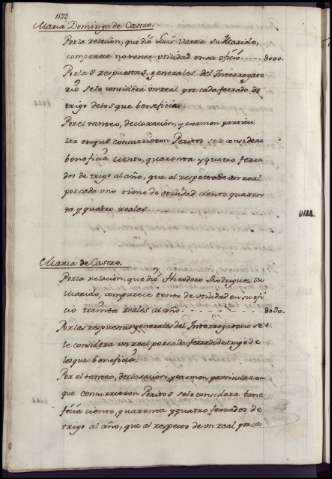 1122
Maria Domingo de Castro.
Por la relacion, que dió Luis Varea su Marido,
comparece no tener utilidad en su oficio 8000.
Por las respuestas generales del Interrogato
rio se le considera un real por cada ferrado de
trigo de los que beneficia.
Por el tanteo, declaracion, y examen particu
lar en que concurrieron Peritos se le considera
beneficia ciento, quarenta y quatro ferra
dos de trigo al año, que al respecto de un real
por cada uno tiene de utilidad ciento quaren
ta y quatro reales
U144
Maria de Castro.
Por la relacion, que dió Rodriguez su
Marido, comparece tener de utilidad en su ofi
cio treinta reales al año 8030.
Por las respuestas generales del Interrogatorio se
le considera un real por cada ferrado de trigo de
los que beneficia.
Por el tanteo, declaracion, y examen particular en
que concurrieron Peritos se le considera bene
ficia ciento, quarenta y quatro ferrados de
trigo al año, que al respecto de un real por ca